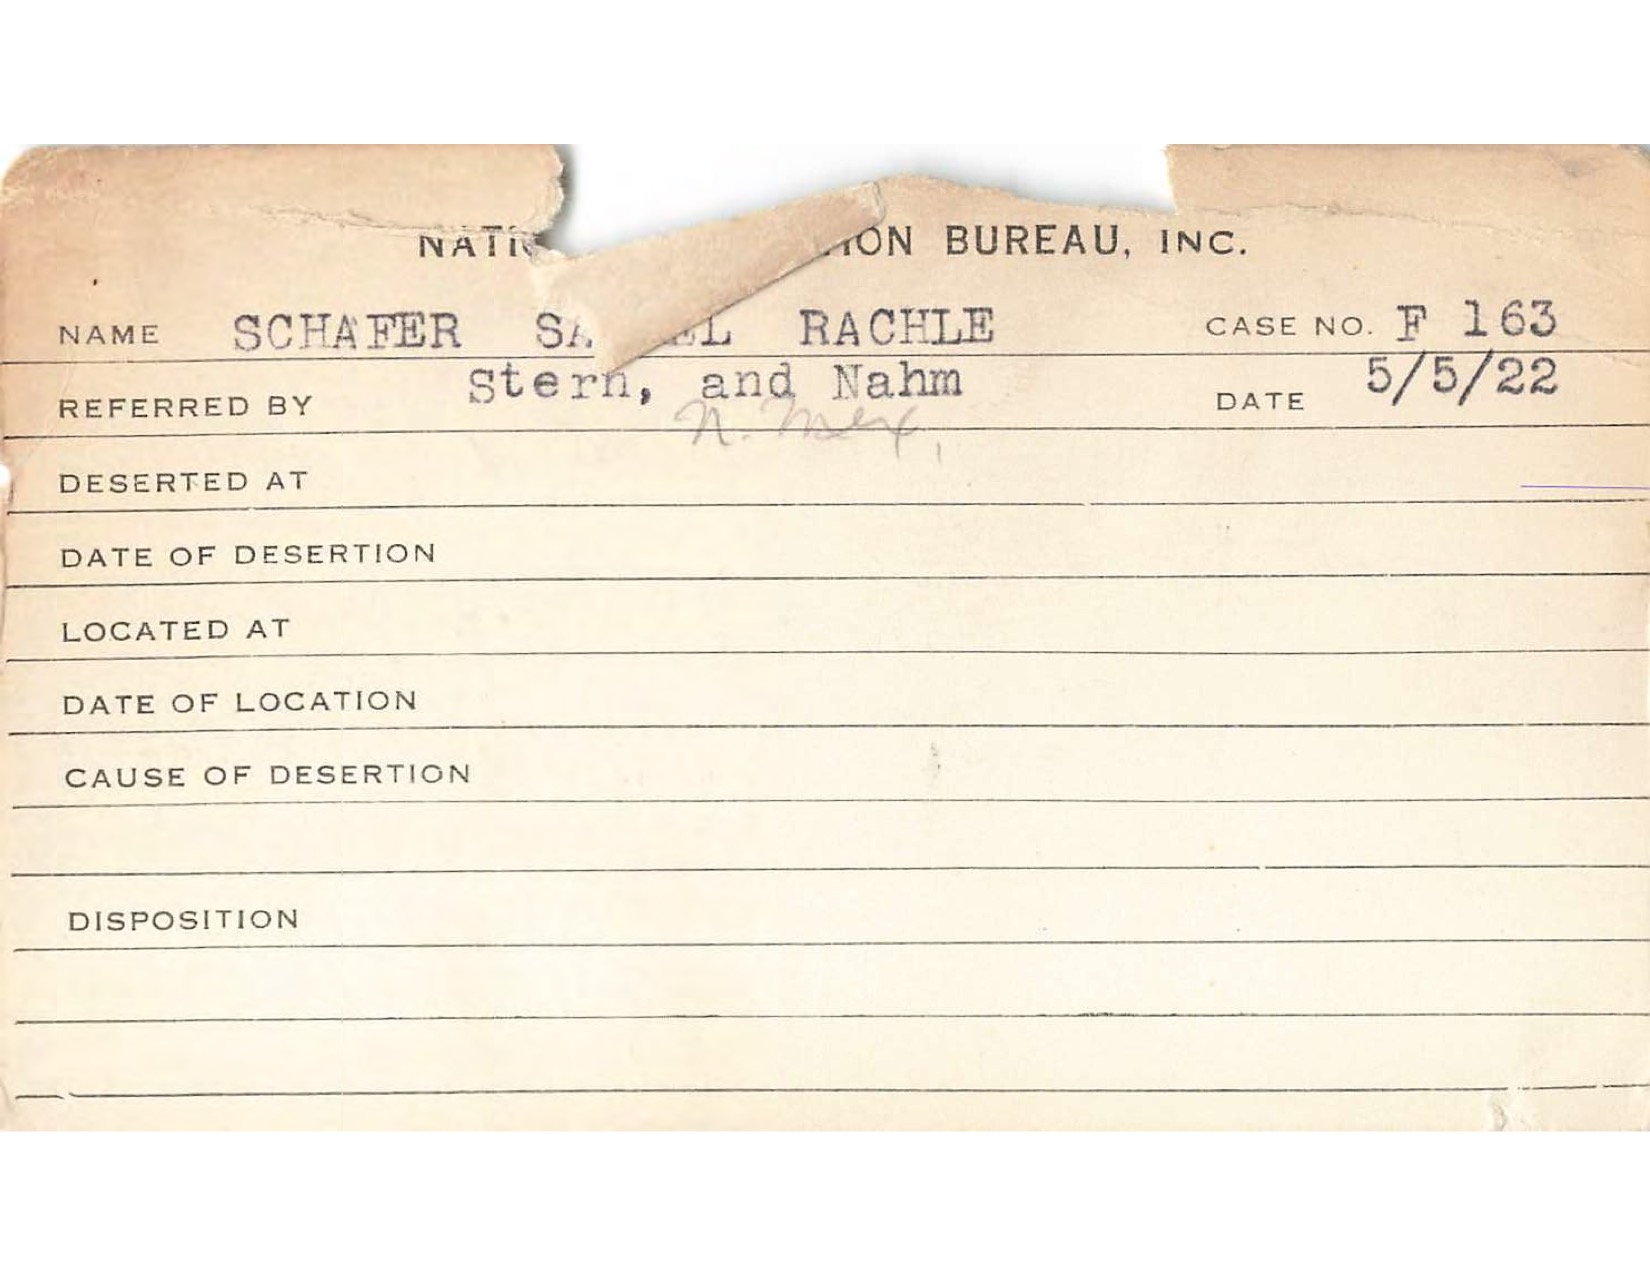 NATI ION BUREAU, INC.
NAME SCHAFER SA EL RACHLE CASE NO. F 163
REFERRED BY Stern, and Nahm DATE 5/5/22
N. Mex,
DESERTED AT
DATE OF DESERTION
LOCATED AT
DATE OF LOCATION
CAUSE OF DESERTION
DISPOSITION